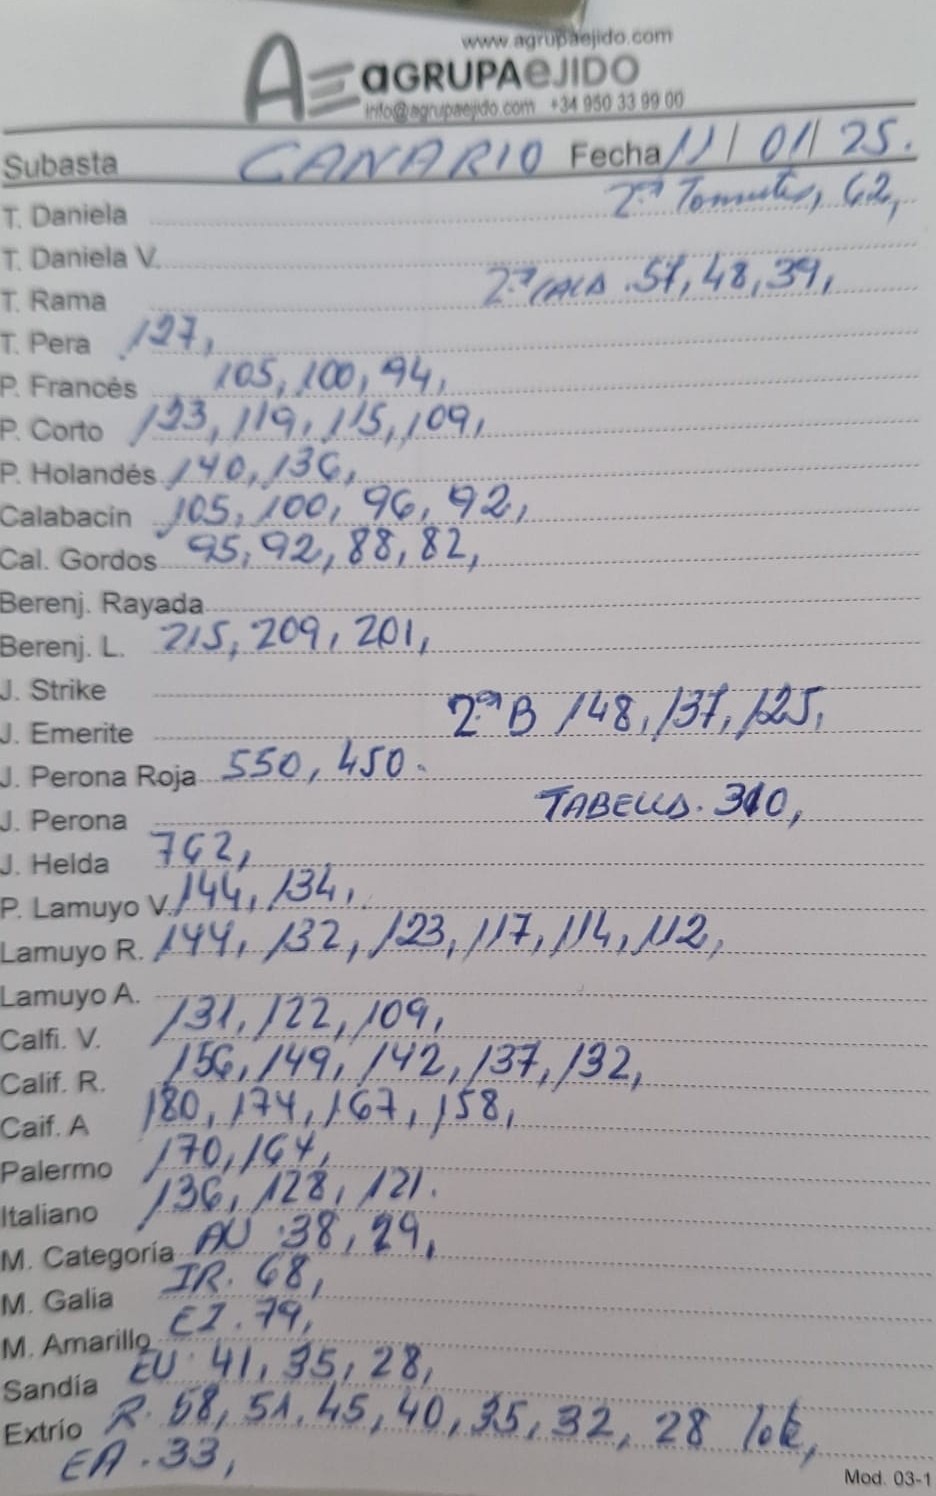 www.agrupaejido.com
AE aGRUPAeJIDO
info@agrupaejido.com +34 950 33 99 00
Subasta CANARIO Fecha 11/01/25.
T. Daniela 2ª Tomates, 62,
T. Daniela V.
T. Rama 2ª CALA. 57, 48, 39,
T. Pera 127,
P. Francés 105, 100, 94,
P. Corto 123, 119, 115, 109,
P. Holandés 140, 136,
Calabacin 105, 100, 96, 92,
Cal. Gordos 95, 92, 88, 82,
Berenj. Rayada
Berenj. L. 215, 209, 201,
J. Strike
J. Emerite 2ª B 148, 137, 125,
J. Perona Roja 550, 450.
J. Perona TABELLA. 310,
J. Helda 762,
P. Lamuyo V. 144, 134,
Lamuyo R. 144, 132, 123, 117, 114, 112,
Lamuyo A.
Calfi. V. 131, 122, 109,
Calif. R. 156, 149, 142, 137, 132,
Caif. A 180, 174, 167, 158,
Palermo 170, 164,
Italiano 136, 128, 121.
M. Categoría AU. 38, 29,
M. Galia IR. 68,
M. Amarillo EI. 79,
Sandía EU. 41, 35, 28,
Extrío R. 58, 51, 45, 40, 35, 32, 28
EA. 33,
Mod. 03-1